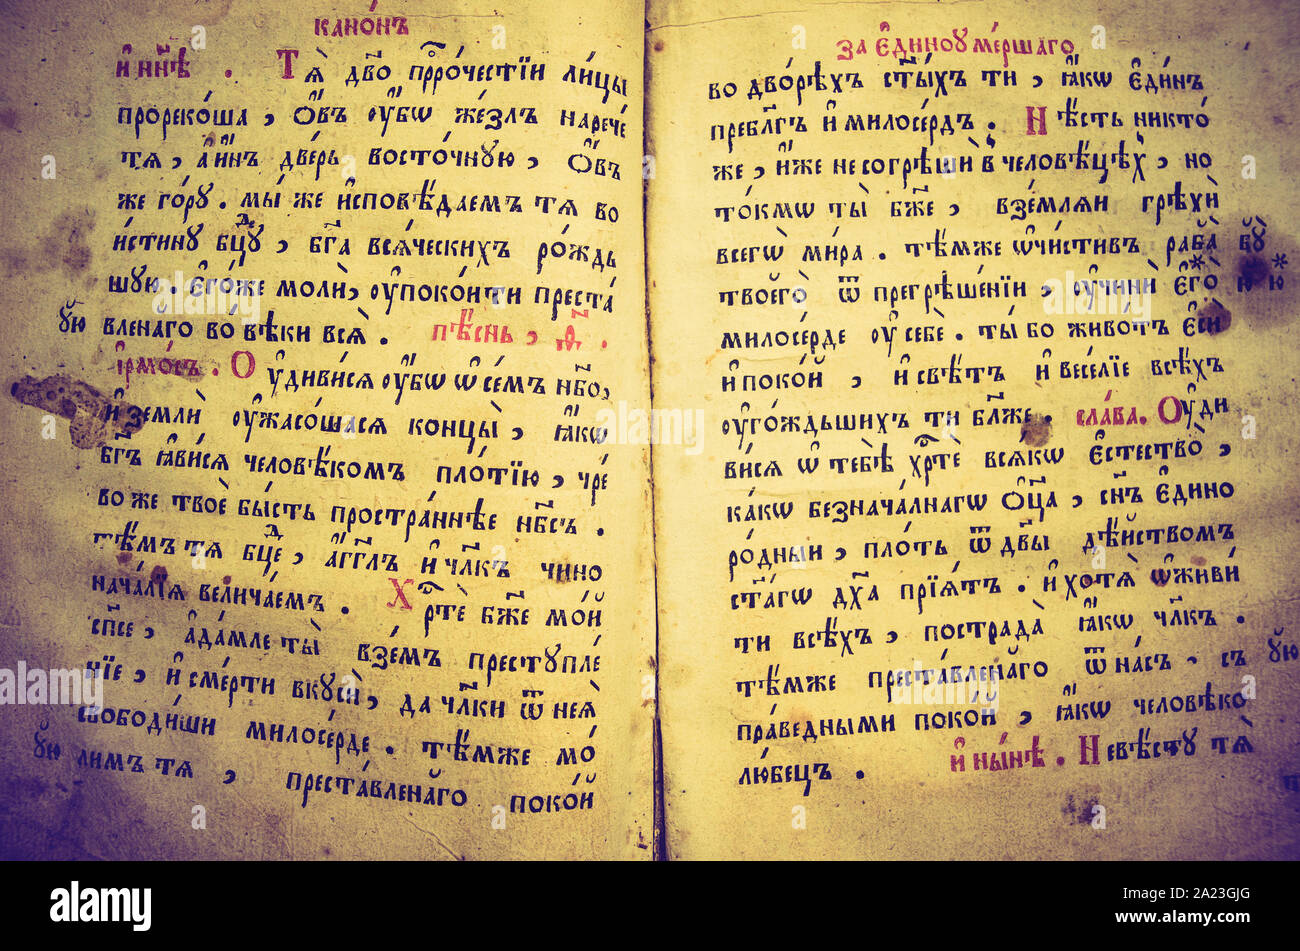 КАНО́НЪ
И҆ НН҃Ѣ . Тѧ̀ дв҃о прⷪ҇ро́честїи ли́цы
прореко́ша , ѻ҆́въ ᲂу҆́бѡ же́злъ нарече́
тѧ , а҆и҆́нъ две́рь восто́чнꙋю , ѻ҆́въ
же го́рꙋ . мы́ же и҆сповѣ́даемъ тѧ во
и҆́стинꙋ бцⷣꙋ , бг҃а всѧ́ческихъ ро́ждь
шꙋю . є҆го́же молѝ , ᲂу҆поко́ити преста́
вленаго во́ вѣки всѧ̀ . пѣ́снь , ѳ҃ .
ꙋю
і҆рмо́съ . Оу҆диви́сѧ ᲂу҆́бѡ ѡ҆ се́мъ нб҃о ,
и҆ землѝ ᲂу҆жасо́шасѧ концы̀ , ꙗ҆́кѡ
бг҃ъ ꙗ҆ви́сѧ человѣ́комъ пло́тїю , чре́
во же твоѐ бы́сть простра́ннѣе нб҃съ .
тѣ́мъ тѧ бцⷣе , а҆́гг҃лъ и҆ чл҃къ чино
нача́лїѧ велича́емъ . Хрⷭ҇тѐ бж҃е мо́й
сп҃се , а҆да́мле ты̀ взе́мъ престꙋпле́
нїе , и҆ сме́рти вкꙋсѝ , да чл҃ки ѿ неѧ̀
свободи́ши милосе́рде . тѣ́мже мо́
лимъ тѧ , преста́вленаго поко́й
ꙋю
ЗА Є҆ДИНОꙊМЕ́РШАГО
во дво́рѣхъ ст҃ы́хъ ти , ꙗ҆́кѡ є҆ди́нъ
пребл҃гъ и҆ милосе́рдъ . Нѣ́сть никто́
же , и҆́же не согрѣшѝ в человѣ́цѣхъ , но
то́кмѡ ты̀ бж҃е , взе́млѧи грѣхѝ
всегѡ̀ ми́ра . тѣ́мже ѡ҆чи́стивъ раба̀ бꙋ̀
твоего̀ ѿ прегрѣше́нїи , ᲂу҆чинѝ є҆го̀* ю ю*
милосе́рде ᲂу҆ себѐ . ты́ бо живо́тъ є҆си
и҆ поко́й , и҆ свѣ́тъ и҆ весе́лїе всѣ́хъ
ᲂу҆го́ждьшихъ ти бл҃же . сла́ва . Оу҆ди
ви́сѧ ѡ҆ тебѣ̀ хрⷭ҇тѐ всѧ́кѡ є҆стество̀ ,
ка́кѡ безнача́лнагѡ ѻ҆ц҃а , сн҃ъ є҆дино
ро́дныи , пло́ть ѿ дв҃ы дѣ́йствомъ
ст҃а́гѡ дх҃а прїѧ́тъ . и҆ хотѧ̀ ѡ҆живи́
ти всѣ́хъ , пострада̀ ꙗ҆́кѡ чл҃къ .
тѣ́мже преста́вленаго ѿ на́съ . съ ꙋю
пра́ведными поко́й , ꙗ҆́кѡ человѣко
лю́бецъ . и҆ ны́нѣ . Невѣ́стꙋ тѧ̀
alamy
Image ID: 2A23GJG
www.alamy.com